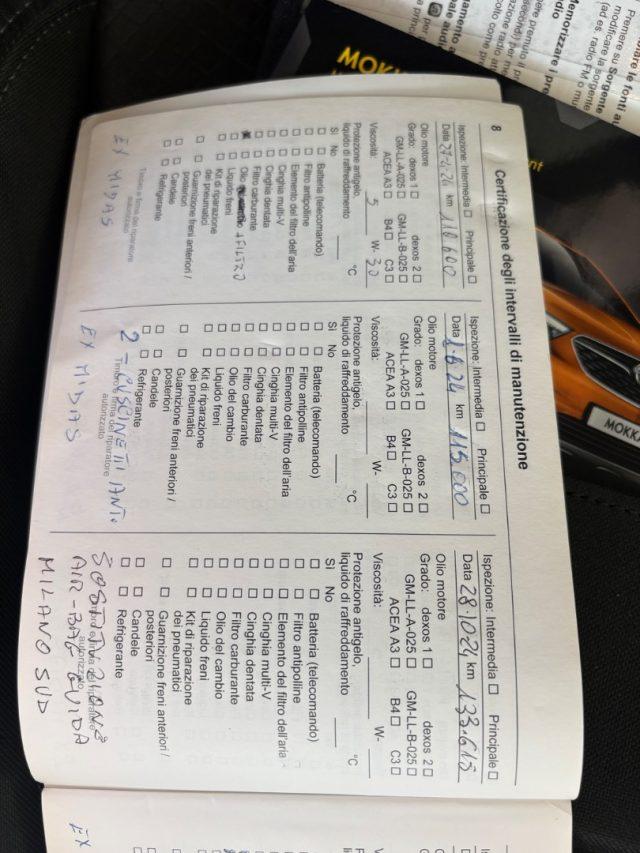 8
Certificazione degli intervalli di manutenzione
Ispezione: Intermedia ☐ Principale ☐
km 110600
Olio motore
Grado: dexos 1 ☐ dexos 2 ☐
GM-LL-A-025 ☐ GM-LL-B-025 ☐
ACEA A3 ☐ B4 ☐ C3 ☐
Viscosità: 5 W- 30
Protezione antigelo,
liquido di raffreddamento °C
SI No
☐ ☐ Batteria (telecomando)
☐ ☐ Filtro antipolline
☐ ☐ Elemento del filtro dell'aria
☐ ☐ Cinghia multi-V
☐ ☐ Cinghia dentata
☐ ☐ Filtro carburante
Olio + FILTRO
☐ ☐ Liquido freni
☐ ☐ Kit di riparazione
dei pneumatici
☐ ☐ Guarnizione freni anteriori /
posteriori
☐ ☐ Candele
☐ ☐ Refrigerante
Timbro e firma del riparatore
autorizzato
EX MIDAS
Ispezione: Intermedia ☐ Principale ☐
Data 1-6-24 km 115000
Olio motore
Grado: dexos 1 ☐ dexos 2 ☐
GM-LL-A-025 ☐ GM-LL-B-025 ☐
ACEA A3 ☐ B4 ☐ C3 ☐
Viscosità: W-
Protezione antigelo,
liquido di raffreddamento °C
SI No
☐ ☐ Batteria (telecomando)
☐ ☐ Filtro antipolline
☐ ☐ Elemento del filtro dell'aria
☐ ☐ Cinghia multi-V
☐ ☐ Cinghia dentata
☐ ☐ Filtro carburante
☐ ☐ Olio del cambio
☐ ☐ Liquido freni
☐ ☐ Kit di riparazione
dei pneumatici
☐ ☐ Guarnizione freni anteriori /
posteriori
☐ ☐ Candele
☐ ☐ Refrigerante
Timbro e firma del riparatore
autorizzato
2 - CUSCINETTI ANT.
EX MIDAS
Ispezione: Intermedia ☐ Principale ☐
Data 28-10-24 km 133.615
Olio motore
Grado: dexos 1 ☐ dexos 2 ☐
GM-LL-A-025 ☐ GM-LL-B-025 ☐
ACEA A3 ☐ B4 ☐ C3 ☐
Viscosità: W-
Protezione antigelo,
liquido di raffreddamento °C
SI No
☐ ☐ Batteria (telecomando)
☐ ☐ Filtro antipolline
☐ ☐ Elemento del filtro dell'aria
☐ ☐ Cinghia multi-V
☐ ☐ Cinghia dentata
☐ ☐ Filtro carburante
☐ ☐ Olio del cambio
☐ ☐ Liquido freni
☐ ☐ Kit di riparazione
dei pneumatici
☐ ☐ Guarnizione freni anteriori /
posteriori
☐ ☐ Candele
☐ ☐ Refrigerante
autorizzato
SOSTITUZIONE
AIR-BAG GUIDA
MILANO SUD
EX
MOKK
MOKKA
Premere su Sorgente
modificare la sorgente
(ad es. radio FM o mu